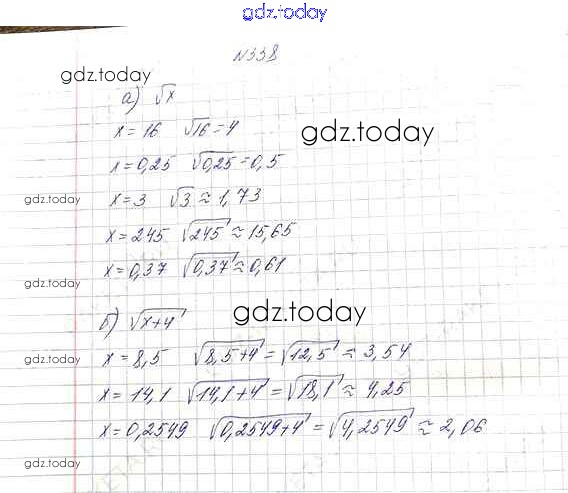 gdz.today
№338
gdz.today
а) √x
x = 16 √16 = 4
gdz.today
x = 0,25 √0,25 = 0,5
gdz.today
x = 3 √3 ≈ 1,73
x = 245 √245 ≈ 15,65
x = 0,37 √0,37 ≈ 0,61
gdz.today
б) √x+4
gdz.today
x = 8,5 √8,5+4 = √12,5 ≈ 3,54
gdz.today
x = 14,1 √14,1+4 = √18,1 ≈ 4,25
x = 0,2549 √0,2549+4 = √4,2549 ≈ 2,06
gdz.today
gdz.today